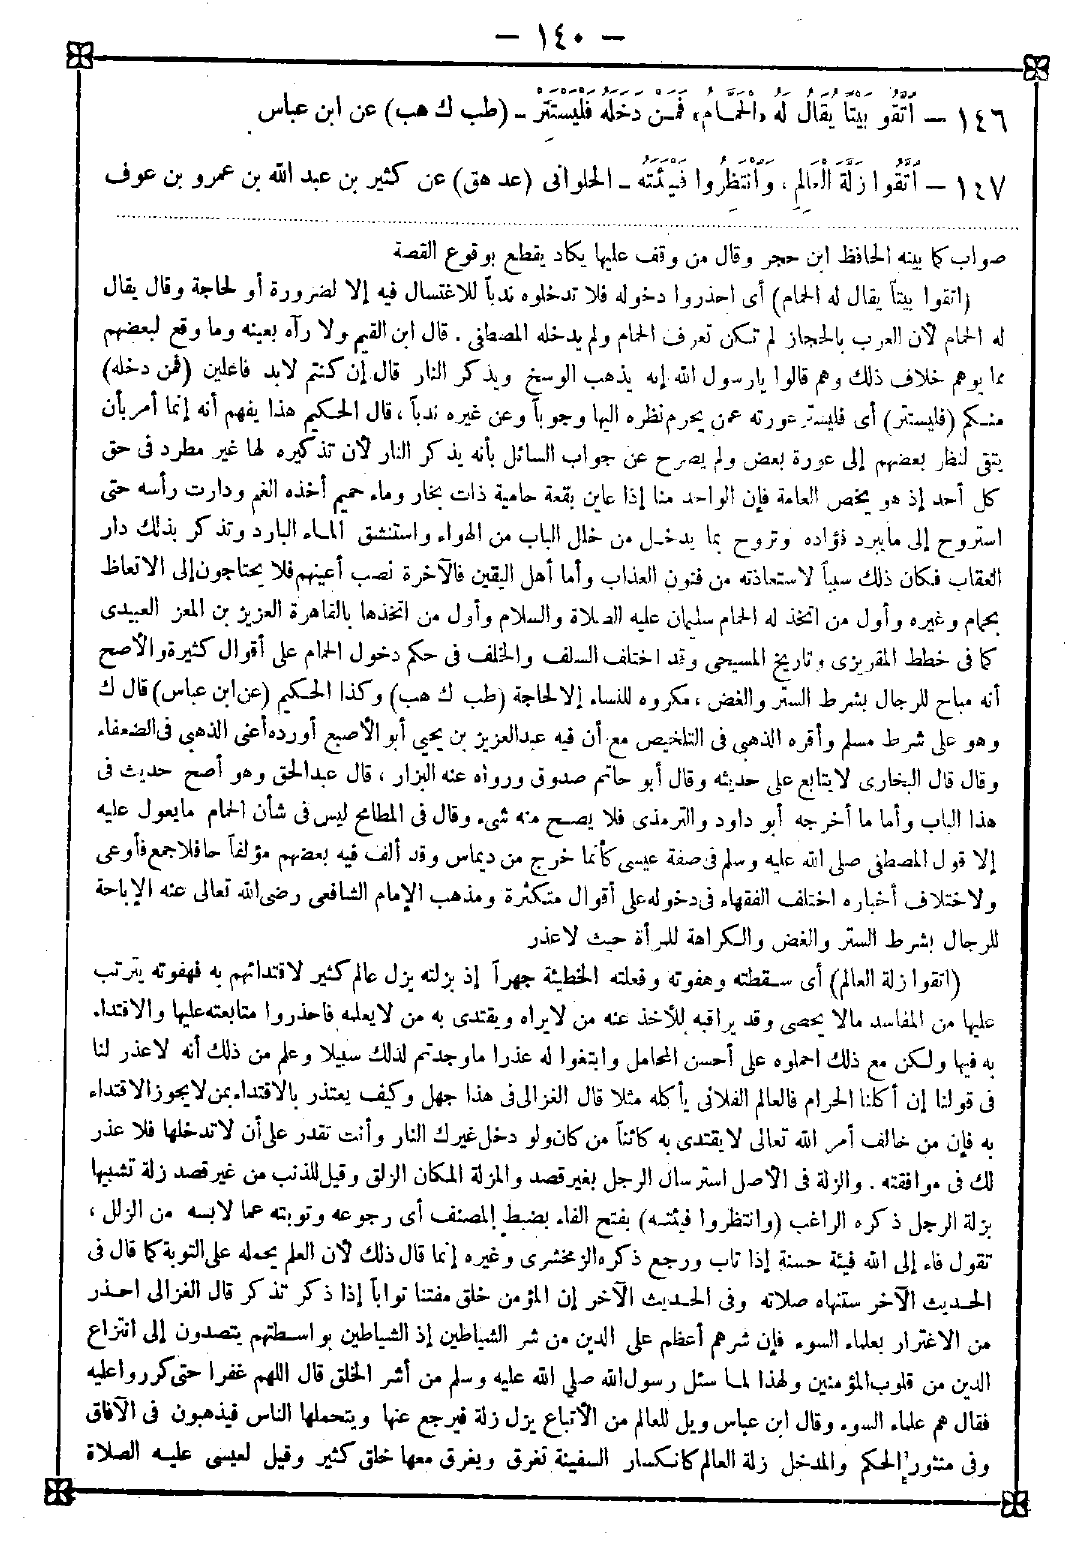 — ١٤٠ —
١٤٦ — اَتَّقُو بَيْتًا يُقَالُ لَهُ «الْحَمَّامُ» فَمَنْ دَخَلَهُ فَلْيَسْتَتِرْ – (طب ك هب) عن ابن عباس
١٤٧ — اَتَّقُوا زَلَّةَ الْعَالِمِ، وَانْتَظِرُوا فَيْئَتَهُ – الحلوانى (عد هق) عن كثير بن عبد الله بن عمرو بن عوف
صواب كما بينه الحافظ ابن حجر وقال من وقف عليها يكاد يقطع بوقوع القصة
(اتقوا بيتاً يقال له الحمام) أى احذروا دخوله فلا تدخلوه ندباً للاغتسال فيه إلا لضرورة أو لحاجة وقال يقال
له الحمام لأن العرب بالحجاز لم تكن تعرف الحمام ولم يدخله المصطفى . قال ابن القيم ولا رآه بعينه وما وقع لبعضهم
مما يوهم خلاف ذلك وهم قالوا يارسول الله إنه يذهب الوسخ ويذكر النار قال إن كنتم لابد فاعلين (فمن دخله)
منكم (فليستتر) أى فليستر عورته عمن يحرم نظره اليها وجوباً وعن غيره ندباً ، قال الحكيم هذا يفهم أنه إنما أمر بأن
يتقى لنظر بعضهم إلى عورة بعض ولم يصرح عن جواب السائل بأنه يذكر النار لأن تذكيره لها غير مطرد فى حق
كل أحد إذ هو يخص العامة فإن الواحد منا إذا عاين بقعة حامية ذات بخار وماء حميم أخذه الغم ودارت رأسه حتى
استروح إلى مايبرد فؤاده وتروح بما يدخل من خلال الباب من الهواء واستنشق الماء البارد وتذكر بذلك دار
العقاب فكان ذلك سبباً لاستعاذته من فنون العذاب وأما أهل اليقين فالآخرة نصب أعينهم فلا يحتاجون إلى الاتعاظ
بحمام وغيره وأول من اتخذ له الحمام سليمان عليه الصلاة والسلام وأول من اتخذها بالقاهرة العزيز بن المعز العبيدى
كما فى خطط المقريزى وتاريخ المسبحى وقد اختلف السلف والخلف فى حكم دخول الحمام على أقوال كثيرة والأصح
أنه مباح للرجال بشرط الستر والغض ، مكروه للنساء إلا لحاجة (طب ك هب) وكذا الحكيم (عن ابن عباس) قال ك
وهو على شرط مسلم وأقره الذهبى فى التلخيص مع أن فيه عبد العزيز بن يحيى أبو الأصبع أورده أعنى الذهبى فى الضعفاء
وقال قال البخارى لا يتابع على حديثه وقال أبو حاتم صدوق ورواه عنه البزار ، قال عبد الحق وهو أصح حديث فى
هذا الباب وأما ما أخرجه أبو داود والترمذى فلا يصح منه شىء وقال فى المطامح ليس فى شأن الحمام مايعول عليه
إلا قول المصطفى صلى الله عليه وسلم فى صفة عيسى كأنما خرج من ديماس وقد ألف فيه بعضهم مؤلفاً حافلا جمع فأوعى
ولاختلاف أخباره اختلف الفقهاء فى دخوله على أقوال متكثرة ومذهب الإمام الشافعى رضى الله تعالى عنه الإباحة
للرجال بشرط الستر والغض والكراهة للمرأة حيث لا عذر
(اتقوا زلة العالم) أى سقطته وهفوته وفعلته الخطيئة جهراً إذ بزلته يزل عالم كثير لاقتدائهم به فهفوته يترتب
عليها من المفاسد مالا يحصى وقد يراقبه للأخذ عنه من لا يراه ويقتدى به من لا يعلمه فاحذروا متابعته عليها والاقتداء
به فيها ولكن مع ذلك احملوه على أحسن المحامل وابتغوا له عذرا ماوجدتم لذلك سبيلا وعلم من ذلك أنه لا عذر لنا
فى قولنا إن أكلنا الحرام فالعالم الفلانى يأكله مثلا قال الغزالى فى هذا جهل وكيف يعتذر بالاقتداء بمن لا يجوز الاقتداء
به فإن من خالف أمر الله تعالى لا يقتدى به كائناً من كان ولو دخل غيرك النار وأنت تقدر على أن لا تدخلها فلا عذر
لك فى موافقته . والزلة فى الأصل استرسال الرجل بغير قصد والمزلة المكان الزلق وقيل للذنب من غير قصد زلة تشبيها
بزلة الرجل ذكره الراغب (وانتظروا فيئته) بفتح الفاء بضبط المصنف أى رجوعه وتوبته عما لابسه من الزلل ،
تقول فاء إلى الله فيئة حسنة إذا تاب ورجع ذكره الزمخشرى وغيره إنما قال ذلك لأن العلم يحمله على التوبة كما قال فى
الحديث الآخر ستنهاه صلاته وفى الحديث الآخر إن المؤمن خلق مفتنا تواباً إذا ذكر تذكر قال الغزالى احذر
من الاغترار بعلماء السوء فإن شرهم أعظم على الدين من شر الشياطين إذ الشياطين بواسطتهم يتصدون إلى انتزاع
الدين من قلوب المؤمنين ولهذا لما سئل رسول الله صلى الله عليه وسلم من أشر الخلق قال اللهم غفرا حتى كرروا عليه
فقال هم علماء السوء وقال ابن عباس ويل للعالم من الأتباع يزل زلة فيرجع عنها ويتحملها الناس فيذهبون فى الآفاق
وفى منثور الحكم والمدخل زلة العالم كانكسار السفينة تغرق ويغرق معها خلق كثير وقيل لعيسى عليه الصلاة